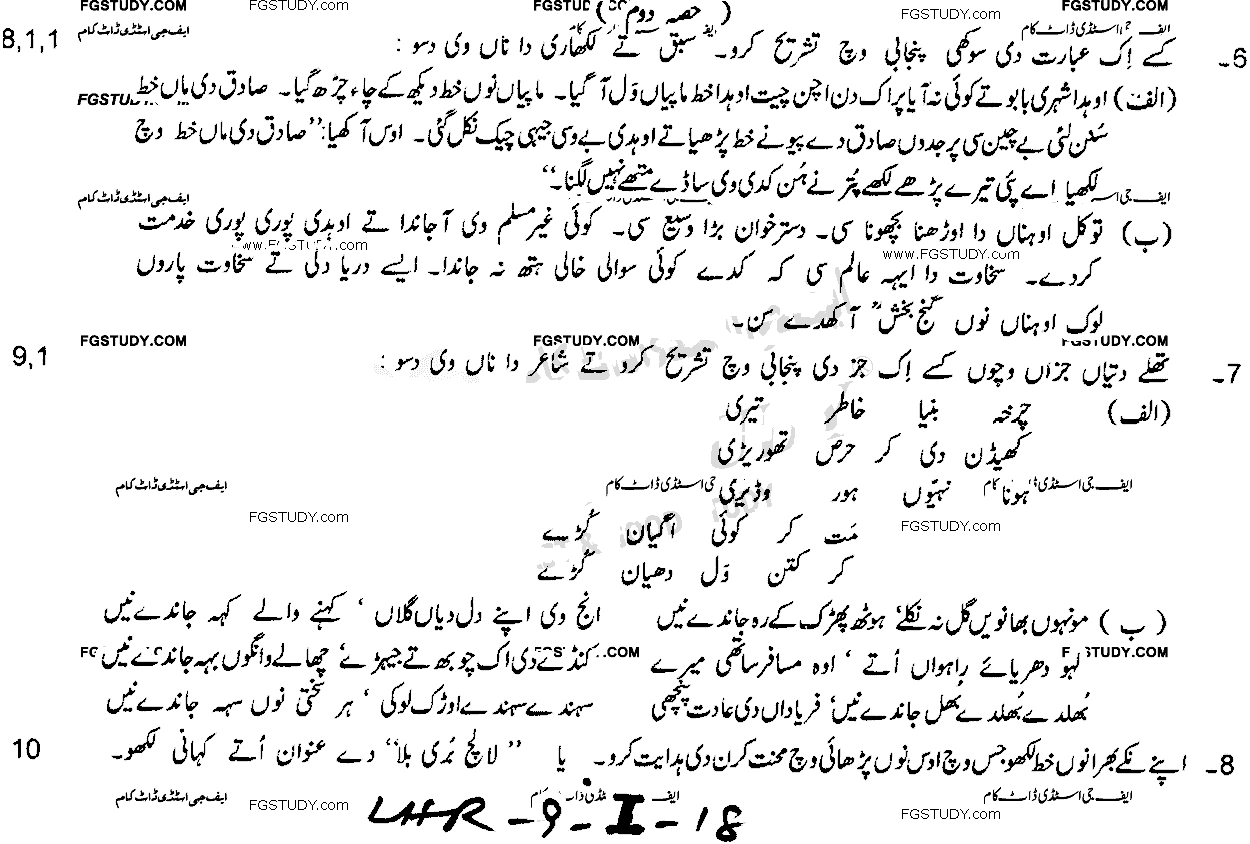 FGSTUDY.COM FGSTUDY.COM FGSTUDY.COM FGSTUDY.COM
( حصہ دوم )
ایف جی اسٹڈی ڈاٹ کام ایف جی اسٹڈی ڈاٹ کام
6۔ کے اِک عبارت دی سوکھی پنجابی وچ تشریح کرو۔ سبق تے لکھاری دا ناں وی دسو : 8,1,1
(الف) اوہدا شہری بابو تے کوئی نہ آیا پر اک دن اچن چیت اوہدا خط ماپیاں وَل آ گیا۔ ماپیاں نوں خط دیکھ کے چاء چڑھ گیا۔ صادق دی ماں خط
FGSTUDY.COM
سُنن لئی بے چین سی پر جدوں صادق دے پیو نے خط پڑھیا تے اوہدی بے وسی جیہی چیک نکل گئی۔ اوس آکھیا: ’’صادق دی ماں خط وچ
لکھیا اے پئی تیرے پڑھے لکھے پُتر نے ہُن کدی وی ساڈے متھے نہیں لگنا۔‘‘
ایف جی اسٹڈی ڈاٹ کام
(ب) توکل اوہناں دا اوڑھنا بچھونا سی۔ دسترخوان بڑا وسیع سی۔ کوئی غیرمسلم وی آ جاندا تے اوہدی پوری پوری خدمت
www.FGSTUDY.com www.FGSTUDY.com
کردے۔ سخاوت دا ایہہ عالم سی کہ کدے کوئی سوالی خالی ہتھ نہ جاندا۔ ایسے دریا دلی تے سخاوت پاروں
لوک اوہناں نوں گنج بخشؒ آکھدے سن۔
FGSTUDY.COM FGSTUDY.COM FGSTUDY.COM
7۔ تھلے دتیاں جزاں وچوں کسے اِک جز دی پنجابی وچ تشریح کرو تے شاعر دا ناں وی دسو : 9,1
(الف) چرخہ بنیا خاطر تیری
کھیڈن دی کر حرص تھوریڑی
ہونا نہیّوں ہور وڈیری
ایف جی اسٹڈی ڈاٹ کام جی اسٹڈی ڈاٹ کام ایف جی اسٹڈی ڈاٹ کام
مَت کر کوئی اگیان کُڑے
FGSTUDY.com FGSTUDY.com
کر کتن وَل دھیان کُڑے
(ب) مونہوں بھانویں گل نہ نکلے‘ ہوٹھ پھڑک کے رہ جاندے نیں انج وی اپنے دل دیاں گلاں ‘ کہنے والے کہہ جاندے نیں
لہو دھریائے راہواں اُتے ‘ اوہ مسافر ساتھی میرے کنڈے دی اک چوبھ تے جیہڑے‘ چھالے وانگوں بہہ جاندے نیں
بُھلدے بُھلدے بھل جاندے نیں‘ فریاداں دی عادت پنچھی سہندے سہندے اوڑک لوکی ‘ ہر سختی نوں سہہ جاندے نیں
8۔ اپنے نکے بھرا نوں خط لکھو جس وچ اوس نوں پڑھائی وچ محنت کرن دی ہدایت کرو۔ یا ’’لالچ بُری بلا‘‘ دے عنوان اُتے کہانی لکھو۔ 10
ایف جی اسٹڈی ڈاٹ کام FGSTUDY.com ایف جی اسٹڈی ڈاٹ کام FGSTUDY.com
LHR-9-I-18